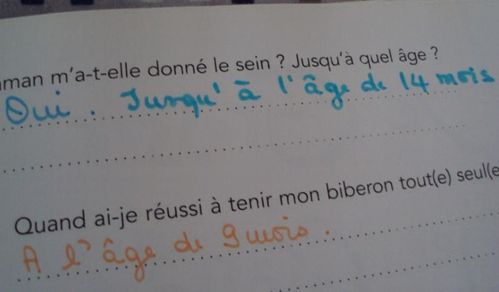 m'a-t-elle donné le sein ? Jusqu'à quel âge ?
Oui. Jusqu'à l'âge de 14 mois
Quand ai-je réussi à tenir mon biberon tout(e) seul(e
A l'âge de 9 mois.